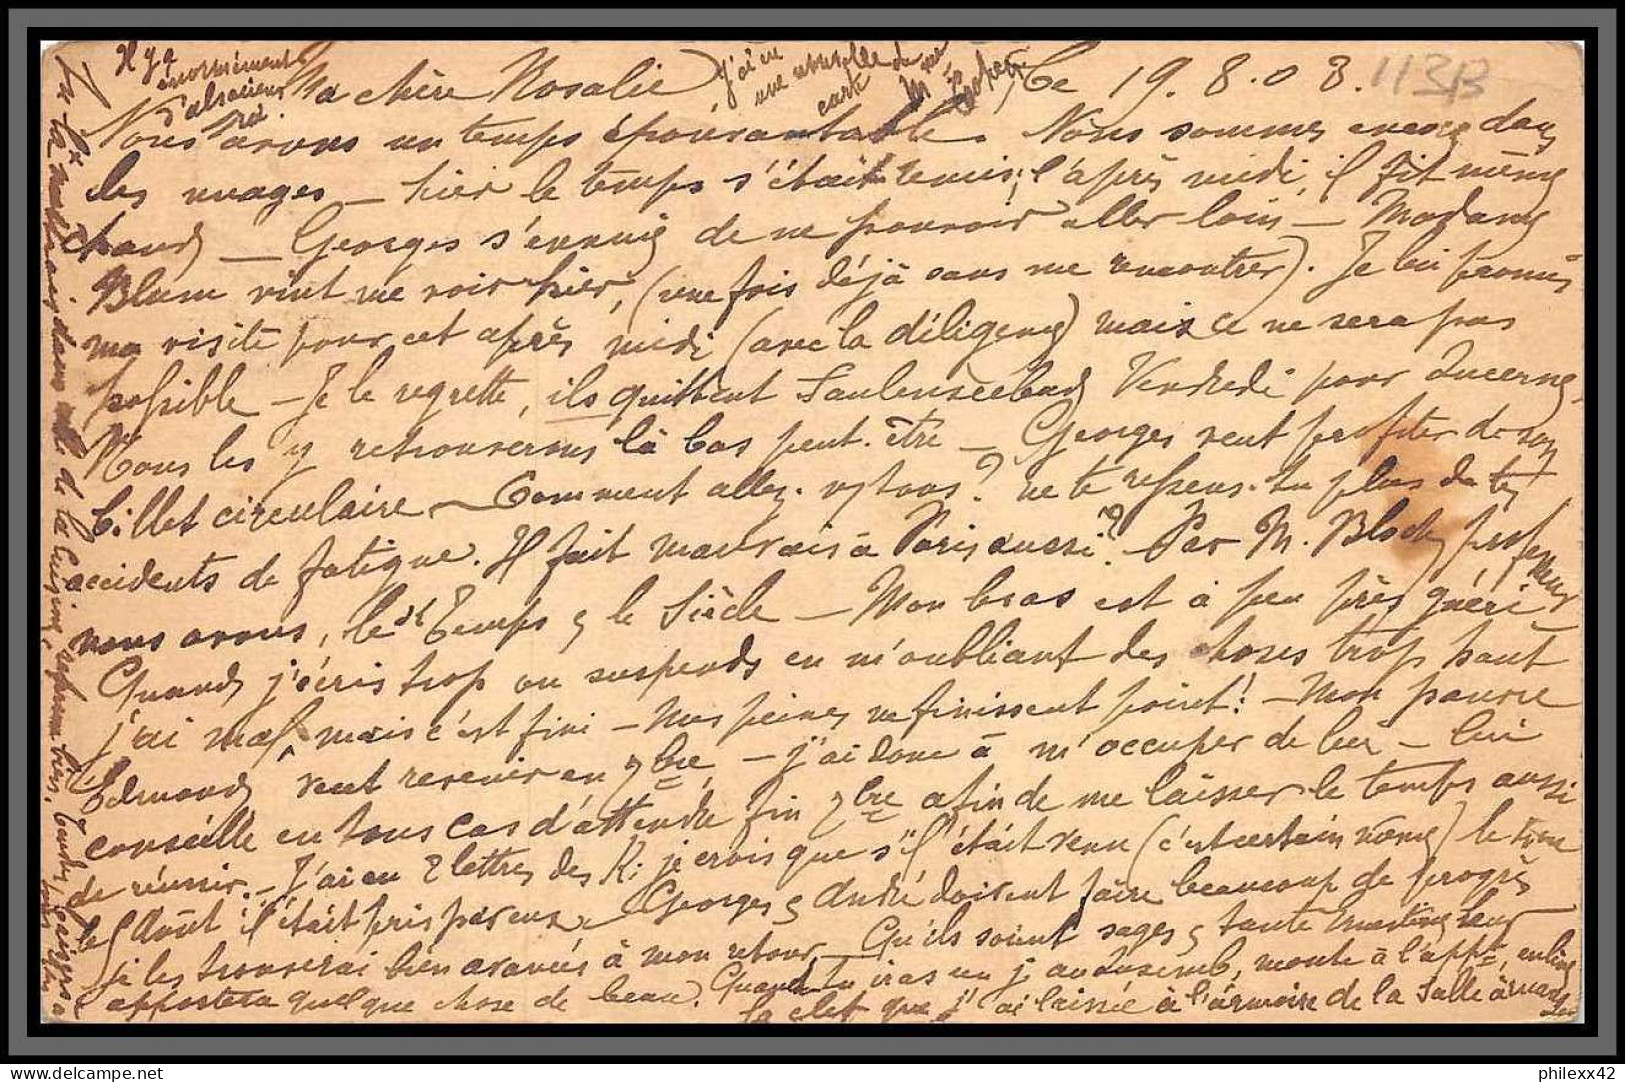 Il y a
énormément
d'alsaciens
ici
Ma chère Rosalie
J'ai eu
une nouvelle
carte
du
M
Le 19.8.03.
113B
Nous avons un temps épouvantable. Nous sommes encore dans
les nuages — hier le temps s'était remis, l'après midi, il fit même
chaud — Georges s'ennuie de ne pouvoir aller loin — Madame
Blum vint me voir hier, (une fois déjà sans me rencontrer). Je lui promis
ma visite pour cet après midi (avec la diligence) mais ce ne sera pas
possible — Je le regrette, ils quittent Faulenseebad Vendredi pour Lucerne.
Nous les y retrouverons là bas peut-être — Georges veut profiter de son
billet circulaire — Comment allez-vs tous? ne te ressens-tu plus de tes
accidents de fatigue. Il fait mauvais à Paris aussi? Par M. Bloch, professeur
nous avons, le Temps & le Siècle — Mon bras est à peu près guéri
Quand j'écris trop ou suspends en m'oubliant des choses trop haut
j'ai mal, mais c'est fini — Mes peines ne finissent point! — Mon pauvre
Edmond veut revenir en 7bre, — j'ai donc à m'occuper de lui — lui
conseille en tous cas d'attendre fin 7bre afin de me laisser le temps aussi
de réussir. — J'ai eu 2 lettres des K; je crois que s'il était venu (c'est certain même) le
août il était pris par eux. Georges & André doivent faire beaucoup de progrès
je les trouverai bien avancés à mon retour — Qu'ils soient sages & tante Martine leur
apportera quelque chose de beau. Quand tu iras un j. au monte à l'appt,
la clef que j'ai laissée à l'armoire de la salle à manger
dans de la cuisine, referme bien,